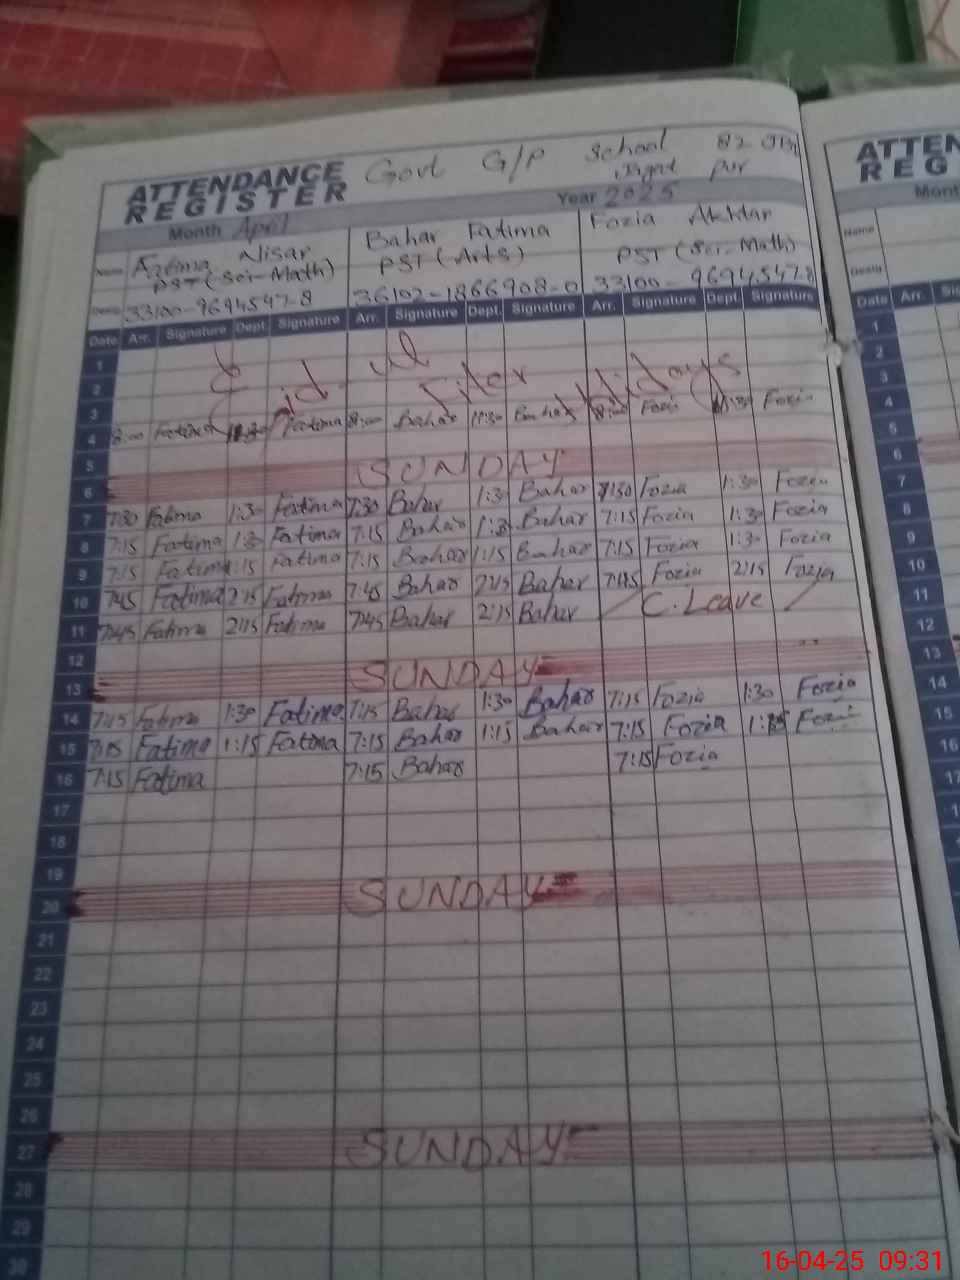 ATTENDANCE REGISTER Govt G/P School 82 JB
Month April Year 2025
Name Fatima Nisar Bahar Fatima Fozia Akhtar
PST (Sci-Math) PST (Arts) PST (Sci-Math)
33100-9694597-8 36102-1866908-0 33100-9694547-8
Date Arr. Signature Dept. Signature Arr. Signature Dept. Signature Arr. Signature Dept. Signature
1 Eid ul
2 Fiter Holidays
3
4 8:00 Fatima 11:30 Fatima 8:00 Bahar 11:30 Bahar 8:00 Fozia 11:30 Fozia
5
6 SUNDAY
7 7:30 Fatima 1:30 Fatima 7:30 Bahar 1:30 Bahar 7:30 Fozia 1:30 Fozia
8 7:15 Fatima 1:30 Fatima 7:15 Bahar 1:30 Bahar 7:15 Fozia 1:30 Fozia
9 7:15 Fatima 1:15 Fatima 7:15 Bahar 1:15 Bahar 7:15 Fozia 1:30 Fozia
10 7:45 Fatima 2:15 Fatima 7:45 Bahar 2:15 Bahar 7:45 Fozia 2:15 Fozia
11 7:45 Fatima 2:15 Fatima 7:45 Bahar 2:15 Bahar C. Leave
12
13 SUNDAY
14 7:15 Fatima 1:30 Fatima 7:15 Bahar 1:30 Bahar 7:15 Fozia 1:30 Fozia
15 7:15 Fatima 1:15 Fatima 7:15 Bahar 1:15 Bahar 7:15 Fozia 1:15 Fozia
16 7:15 Fatima 7:15 Bahar 7:15 Fozia
17
18
19
20 SUNDAY
21
22
23
24
25
26
27 SUNDAY
28
29
30
ATTEN
REG
Mont
Name
Desig
Date Arr.
1
2
3
4
5
6
7
8
9
10
11
12
13
14
15
16
17
16-04-25 09:31